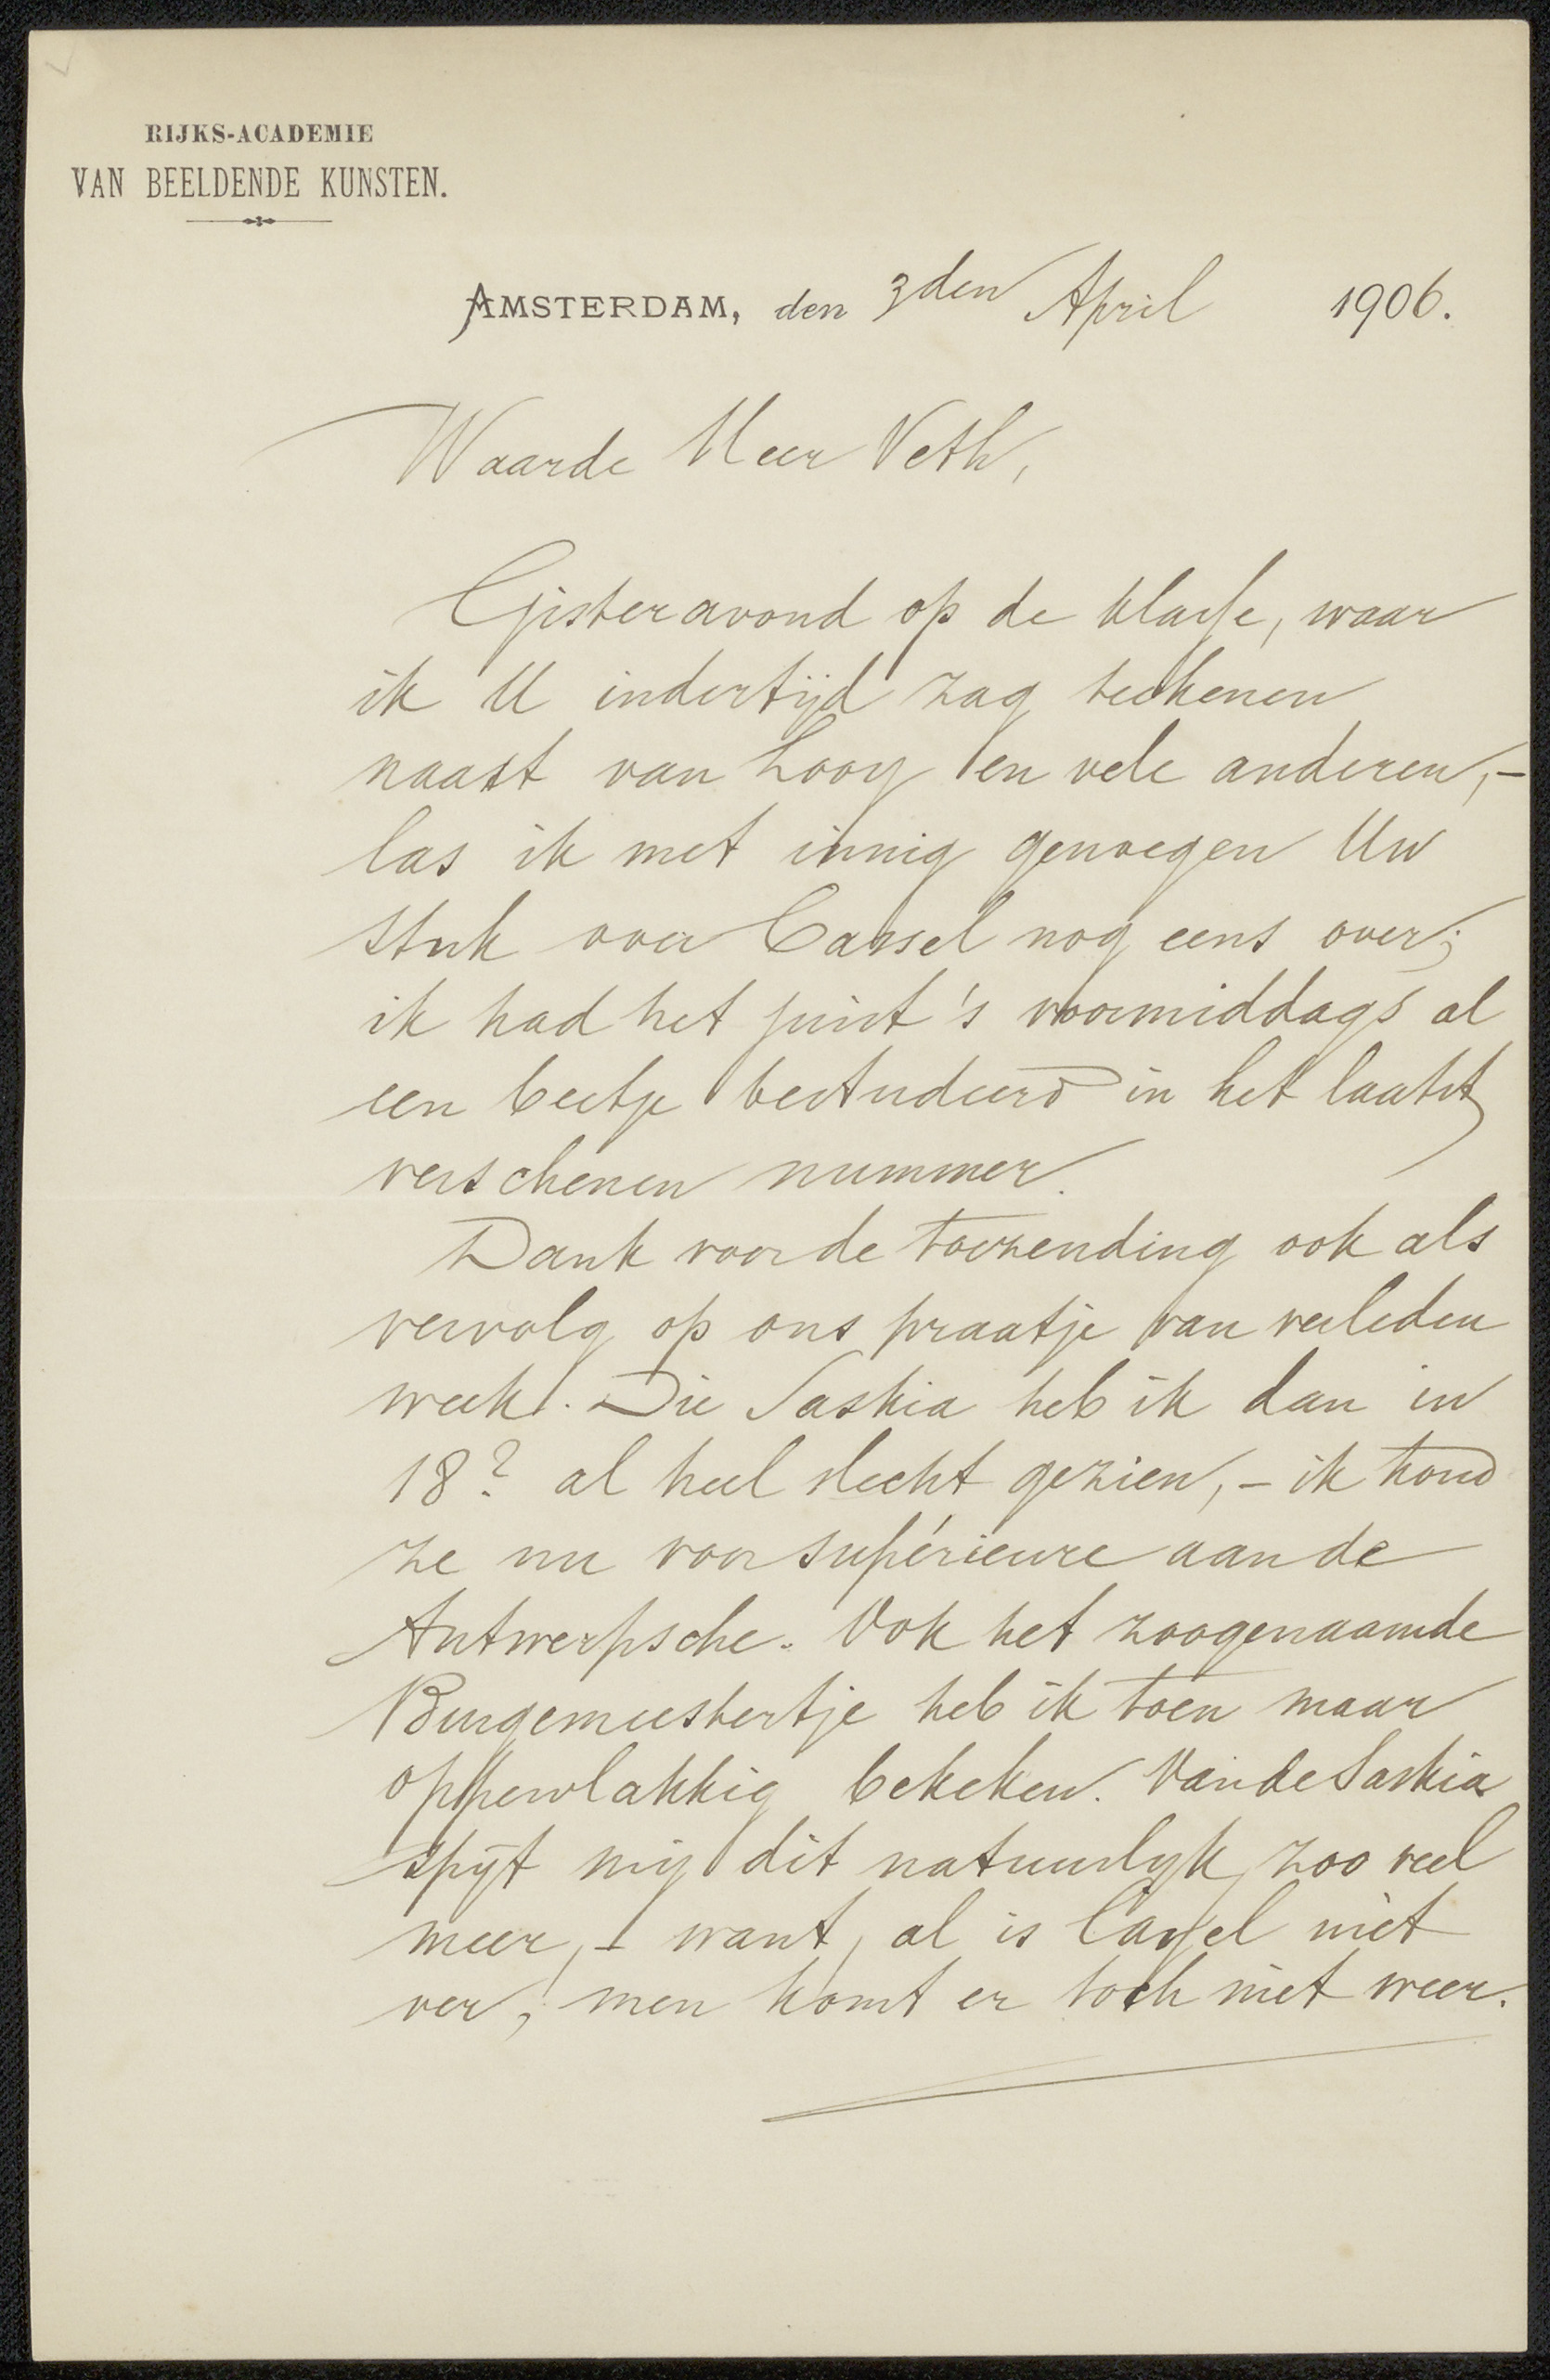 RIJKS-ACADEMIE
VAN BEELDENDE KUNSTEN.
AMSTERDAM, den 3den April 1906.
Waarde Heer Veth,
Gisteravond op de klasse, waar
ik U indertijd zag teekenen
naast van Looy en vele anderen, -
las ik met innig genoegen Uw
stuk over Cassel nog eens over;
ik had het juist 's voormiddags al
een beetje bestudeerd in het laatst
verschenen nummer.
Dank voor de toezending ook als
vervolg op ons praatje van verleden
week. Die Saskia heb ik dan in
18? al heel slecht gezien, - ik houd
ze nu voor supérieure aan de
Antwerpsche. Ook het zoogenaamde
Burgemeestertje heb ik toen maar
oppervlakkig bekeken. Van de Saskia
spijt mij dit natuurlyk zoo veel
meer, - want, al is Cassel niet
ver, men komt er toch niet weer.